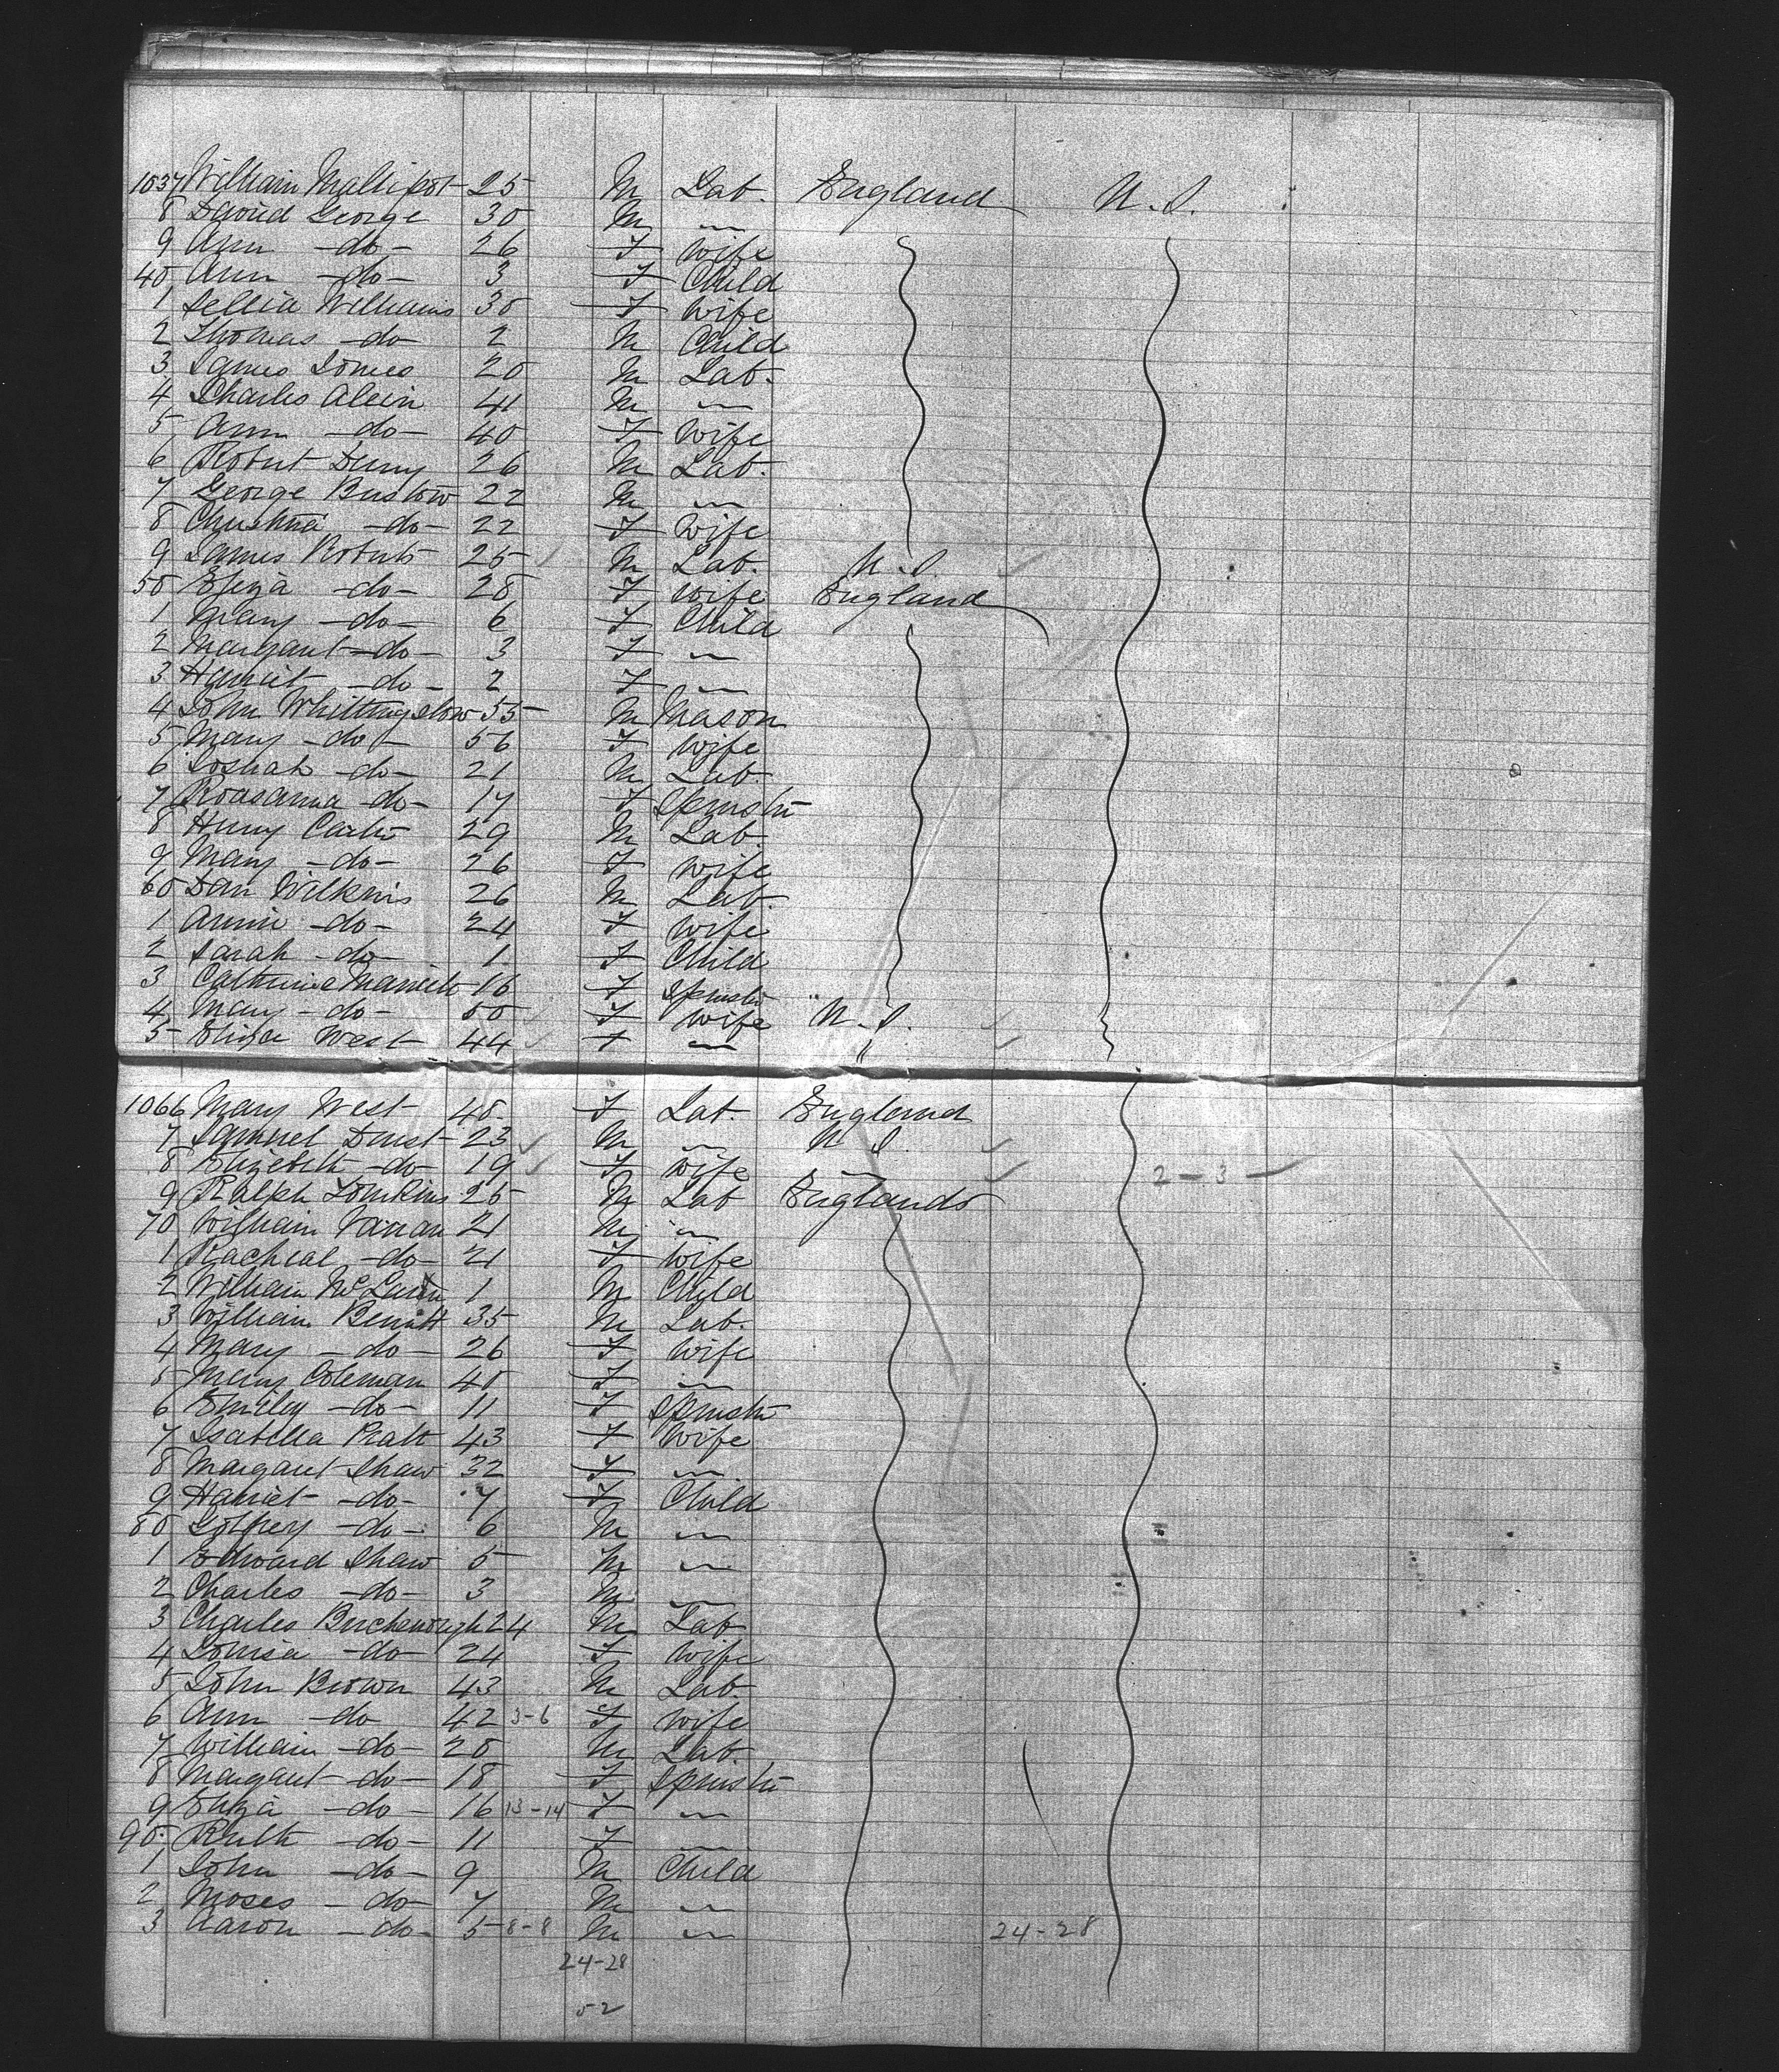 1037 William Mallipot 25 M Lab. England U.S.
8 David George 30 M "
9 Ann -do- 26 F Wife
40 Ann -do- 3 F Child
1 Sellia Williams 30 F Wife
2 Thomas -do- 2 M Child
3 James Jones 20 M Lab.
4 Charles Alein 41 M "
5 Ann -do- 40 F Wife
6 Robert Deny 26 M Lab.
7 George Bustow 22 M "
8 Christina -do- 22 F Wife
9 James Roberts 25 M Lab. U.S.
50 Eliza -do- 28 F Wife England
1 Mary -do- 6 F Child
2 Margaret -do- 3 F "
3 Harriet -do- 2 F "
4 John Whittingslow 55 M Mason
5 Mary -do- 56 F Wife
6 Josiah -do- 21 M Lab.
7 Roasanna -do- 17 F Spinster
8 Henry Carter 29 M Lab.
9 Mary -do- 26 F Wife
60 Dan Wilkins 26 M Lab.
1 Annie -do- 24 F Wife
2 Sarah -do- 1 F Child
3 Catherine 16 F Spinster
4 Mary -do- 50 F Wife U.S.
5 Eliza West 44 F " "
1066 Mary West 40 F Lab. England
7 Samuel Dust 23 M " U.S.
8 Elizebeth -do- 19 F Wife " 2-3-
9 Ralph Tomkins 25 M Lab England
70 William 21 M "
1 Racheal -do- 21 F Wife
2 William McLaren 1 M Child
3 William Benett 35 M Lab.
4 Mary -do- 26 F Wife
5 Mary Coleman 40 F "
6 Emiley -do- 11 F Spinster
7 Isabella Pratt 43 F Wife
8 Margaret Shaw 32 F "
9 Harriet -do- 7 F Child
80 Golfrey -do- 6 M "
1 Edward Shaw 5 M "
2 Charles -do- 3 M "
3 Charles Birchenough 24 M Lab
4 Louisa -do- 24 F Wife
5 John Brown 43 M Lab.
6 Ann -do 42 3-6 F Wife
7 William -do- 20 M Lab.
8 Margaret -do- 18 F Spinster
9 Eliza -do- 16 13-14 F "
90 Ruth -do- 11 F "
1 John -do- 9 M Child
2 Moses -do- 7 M "
3 Aaron -do- 5 8-8 M " 24-28
24-28
52